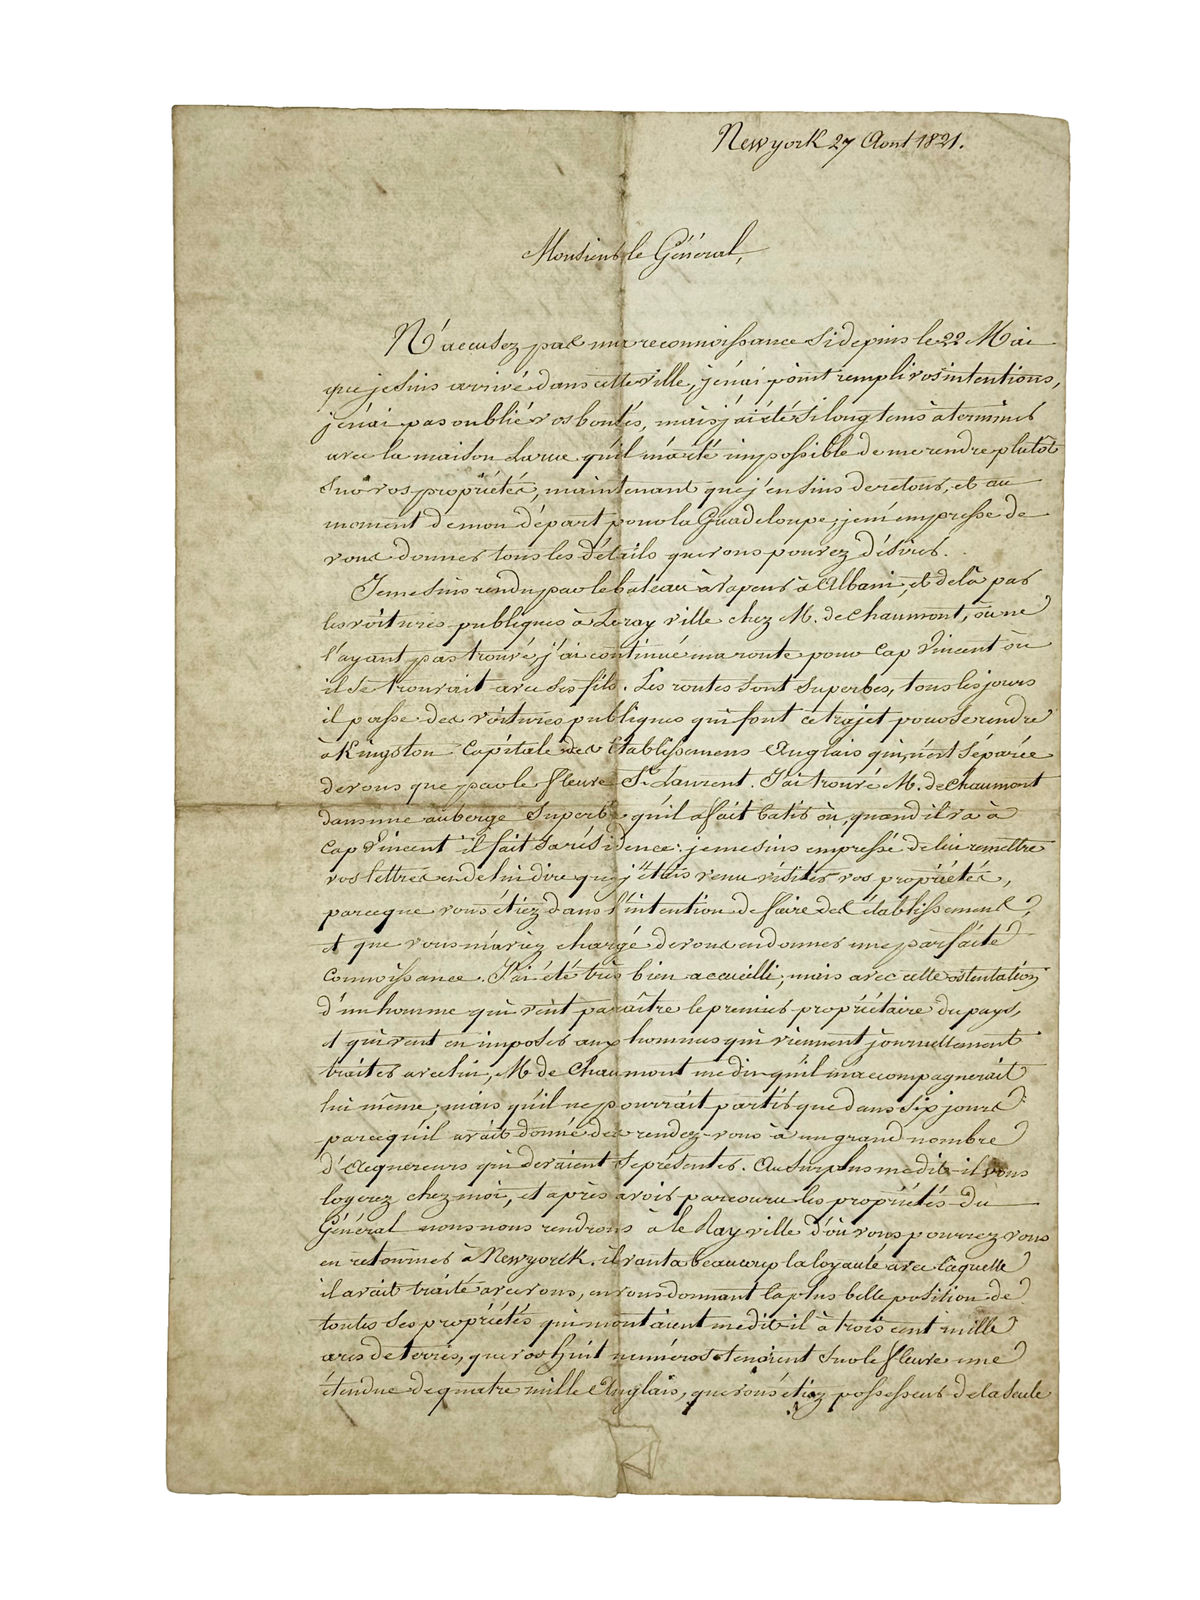 Newyork 27 Aout 1821.
Monsieur le Général,
N'accusez pas ma reconnoissance si depuis le 22 Mai
que je suis arrivé dans cette ville, je n'ai point rempli vos intentions,
je n'ai pas oublié vos bontés, mais j'ai été si longtems à terminer
avec la maison Larue qu'il m'a été impossible de me rendre plutôt
sur vos propriétés, maintenant que j'en suis de retour, et au
moment de mon départ pour la Guadeloupe, je m'empresse de
vous donner tous les détails que vous pouvez désirer.
Je me suis rendu par le bateau à vapeur à Albani, et de là par
les voitures publiques à Leray ville chez M. de Chaumont, où ne
l'ayant pas trouvé j'ai continué ma route pour Cap Vincent où
il se trouvait avec ses fils. Les routes sont superbes, tous les jours
il passe des voitures publiques qui font ce trajet pour se rendre
à Kingston Capitale des Etablissemens Anglais qui n'est séparée
de vous que par le fleuve St Laurent. J'ai trouvé M. de Chaumont
dans une auberge superbe qu'il a fait batir où, quand il va à
Cap Vincent il fait sa résidence: je me suis empressé de lui remettre
vos lettres en de lui dire que j'étais venu visiter vos propriétés,
parceque vous étiez dans l'intention de faire des établissemens,
et que vous m'aviez chargé de vous en donner une parfaite
connoissance. J'ai été très bien accueilli; mais avec cette ostentation
d'un homme qui veut paraître le premier propriétaire du pays,
et qui veut en imposer aux hommes qui viennent journellement
traiter avec lui, M. de Chaumont me dit qu'il m'accompagnerait
lui même; mais qu'il ne pourrait partir que dans six jours
parcequ'il avait donné des rendez-vous à un grand nombre
d'Acquereurs qui devaient se présenter. Au surplus me dit-il vous
logerez chez moi, et après avoir parcouru les propriétés du
Général nous nous rendrons à le Ray ville d'où vous pourrez vous
en retourner à Newyorck. il vanta beaucoup la loyauté avec laquelle
il avait traité avec vous, en vous donnant la plus belle position de
toutes ses propriétés qui montaient me dit-il à trois cent mille
acres de terres, que vos huit numéros tenoient sur le fleuve une
étendue de quatre mille Anglais, que vous étiez possesseur de la seule